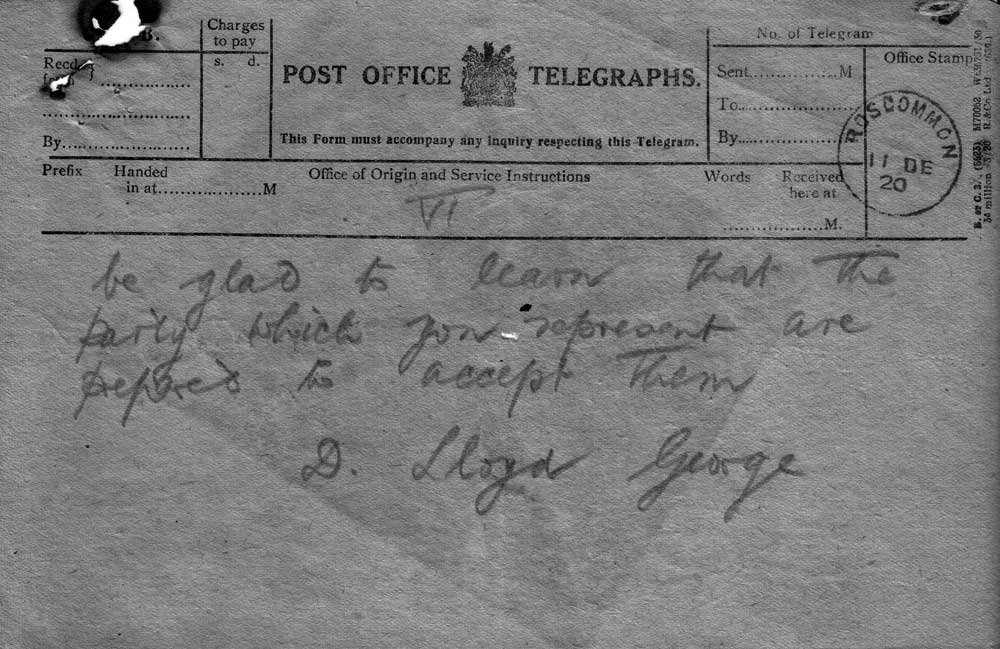 B.
Charges
to pay
s. d.
Recd.
from
By
POST OFFICE TELEGRAPHS.
This Form must accompany any inquiry respecting this Telegram.
No. of Telegram
Sent M
To
By
Office Stamp
ROSCOMMON
11 DE
20
Prefix Handed
in at M
Office of Origin and Service Instructions
Words Received
here at
M.
VI
be glad to learn that the
party which you represent are
prepared to accept them
D. Lloyd George